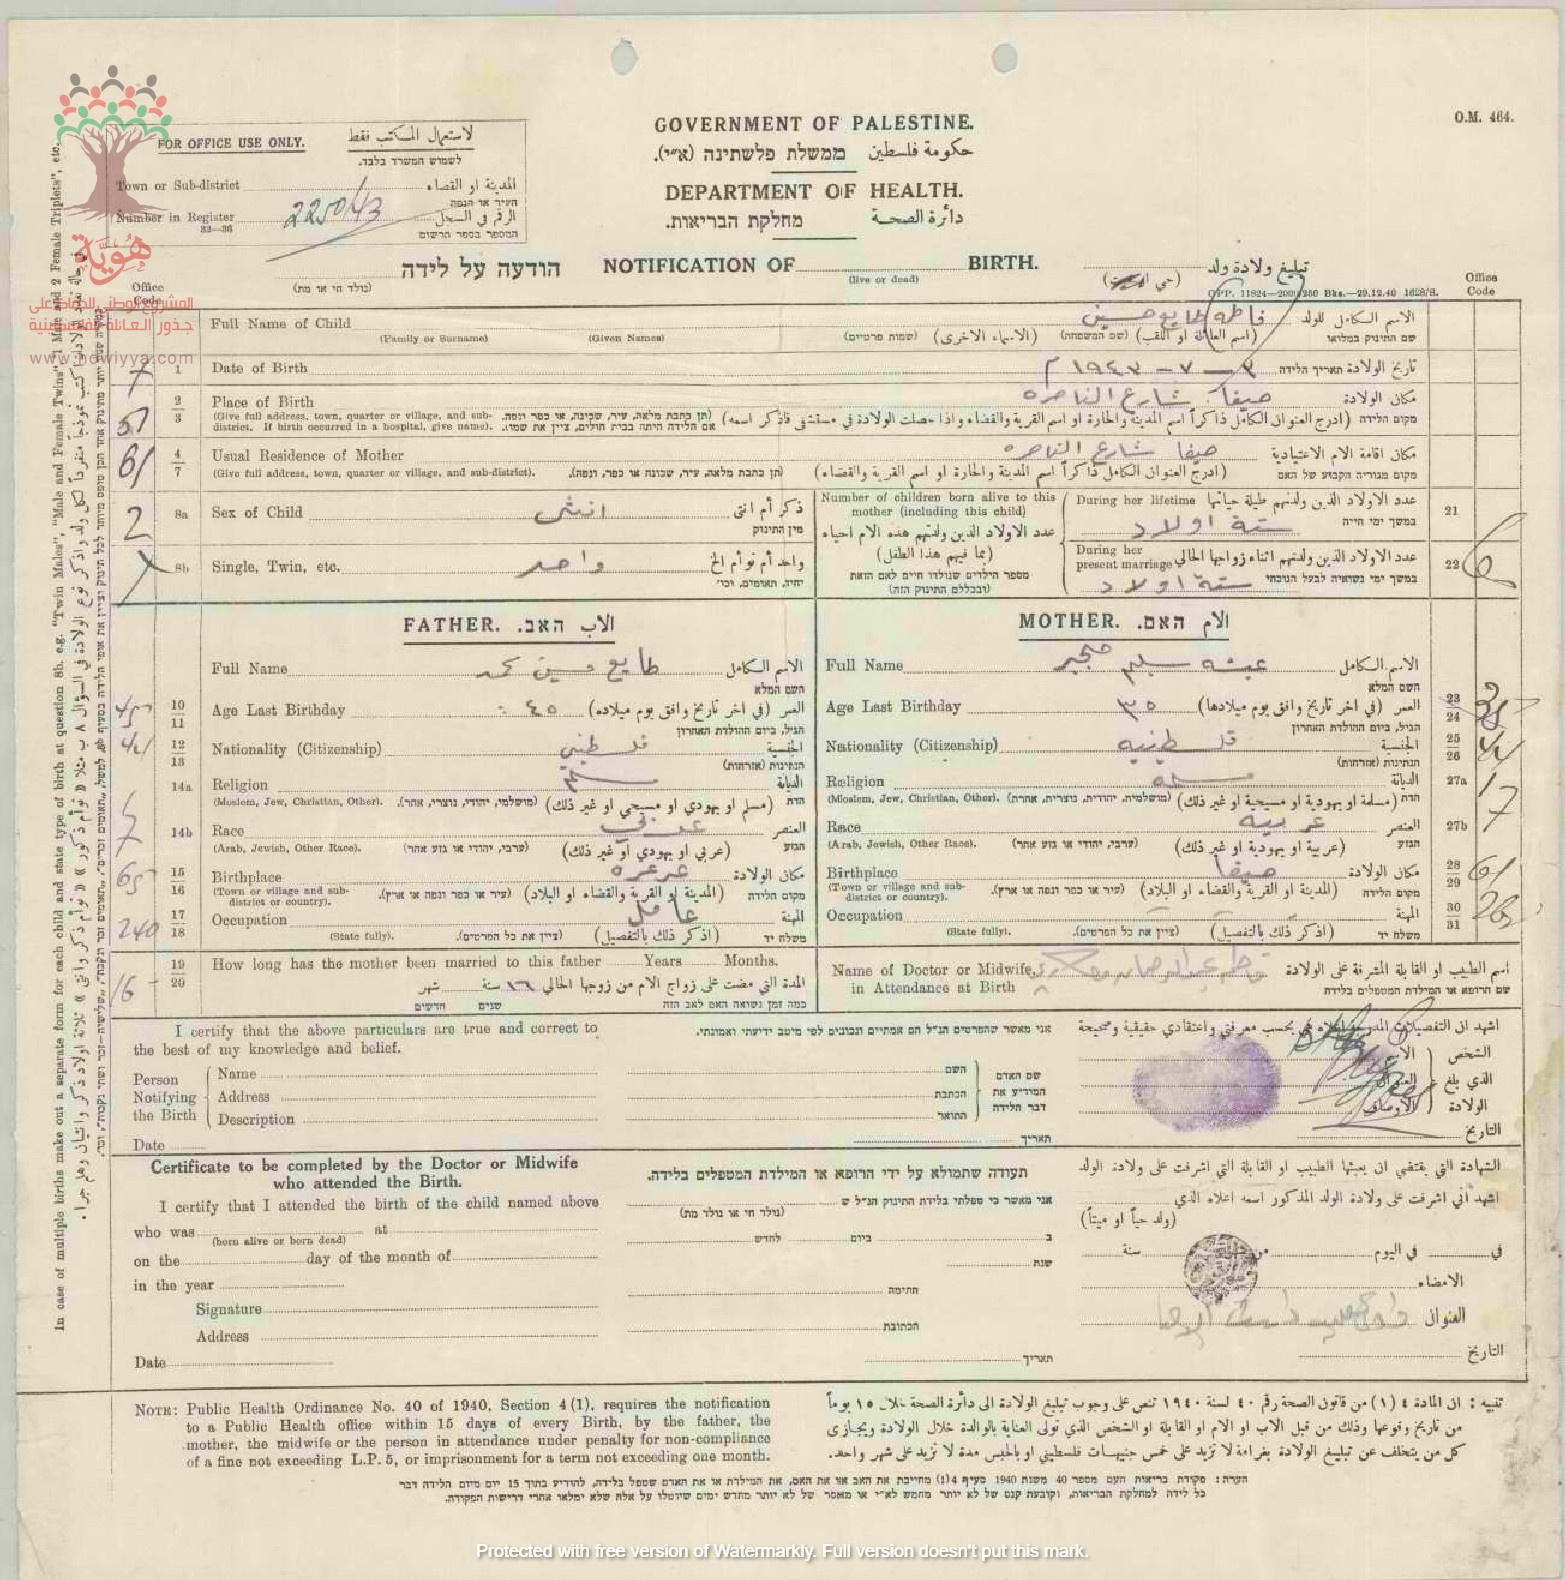 O.M. 464.
FOR OFFICE USE ONLY. لاستعمال المكتب فقط
לשמוש המשרד בלבד.
Town or Sub-district المدينة او القضاء
העיר או הנפה
Number in Register 2250/43 الرقم في السجل
32—36 המספר בספר הרשום
GOVERNMENT OF PALESTINE.
ממשלת פלשתינה (א״י). حكومة فلسطين
DEPARTMENT OF HEALTH.
מחלקת הבריאות. دائرة الصحة
הודעה על לידה NOTIFICATION OF BIRTH. تبليغ ولادة ولد
(כולד חי או מת) (live or dead)
GPP. 11824—2000/250 Bks.—29.12.40 1628/S.
Office Code
Office Code
هُويّة
المشروع الوطني للحفاظ على
جذور العائلة الفلسطينية
www.howiyya.com
Full Name of Child فاطمه طايع حسين الاسم الكامل للولد
(Family or Surname) (Given Names) (שמות פרטיים) (الاسماء الاخرى) (שם המשפחה) (اسم العائلة او اللقب) שם התינוק במלואו
7 1 Date of Birth ٣ - ٧ - ١٩٤٣ م תאריך הלידה تاريخ الولادة
2 3 Place of Birth حيفا شارع الناصره مكان الولادة
(Give full address, town, quarter or village, and sub-district. If birth occurred in a hospital, give name). (תן כתבת מלאה, עיר, שכונה, או כפר ונפה. אם הלידה היתה בבית חולים, ציין את שמו). (ادرج العنوان الكامل ذاكراً اسم المدينة والحارة او اسم القرية والقضاء واذا حصلت الولادة في مستشفى فاذكر اسمه) מקום הלידה
4 7 Usual Residence of Mother حيفا شارع الناصره مكان اقامة الام الاعتيادية
(Give full address, town, quarter or village, and sub-district). (תן כתבת מלאה, עיר, שכונה או כפר, ונפה). (ادرج العنوان الكامل ذاكراً اسم المدينة والحارة او اسم القرية والقضاء) מקום מגוריה הקבוע של האם
2 8a Sex of Child انثى ذكر أم انثى
מין התינוק
8b Single, Twin, etc. واحد واحد أم توأم الخ
יחיד, תאומים, וכו׳
Number of children born alive to this mother (including this child)
عدد الاولاد الذين ولدتهم هذه الام احياء
(بما فيهم هذا الطفل)
מספר הילדים שנולדו חיים לאם הזאת
(ובכללם התינוק הזה)
During her lifetime عدد الاولاد الذين ولدتهم طيلة حياتها 21
ستة اولاد במשך ימי חייה
During her present marriage عدد الاولاد الذين ولدتهم اثناء زواجها الحالي 22 6
ستة اولاد במשך ימי נשואיה לבעל הנוכחי
FATHER. האב. الاب
Full Name طايع حسين محمد الاسم الكامل
השם המלא
45 10 11 Age Last Birthday ٤٥ العمر (في اخر تاريخ وافق يوم ميلاده)
הגיל, ביום ההולדת האחרון
12 13 Nationality (Citizenship) فلسطيني الجنسية
הנתינות (אזרחות)
14a Religion مسلم الديانة
(Moslem, Jew, Christian, Other). (מושלמי, יהודי, נוצרי, אחר). (مسلم او يهودي او مسيحي او غير ذلك) הדת
14b Race عربي العنصر
(Arab, Jewish, Other Race). (ערבי, יהודי או גזע אחר) (عربي او يهودي او غير ذلك) הגזע
65 15 16 Birthplace عرعره مكان الولادة
(Town or village and sub-district or country). (עיר או כפר ונפה או ארץ). (المدينة او القرية والقضاء او البلاد) מקום הלידה
240 17 18 Occupation عامل المهنة
(State fully). (ציין את כל הפרטים). (اذكر ذلك بالتفصيل) משלח יד
MOTHER. האם. الام
Full Name عيشه سليم الاسم الكامل
השם המלא
Age Last Birthday ٣٥ العمر (في اخر تاريخ وافق يوم ميلادها) 23 24 35
הגיל, ביום ההולדת האחרון
Nationality (Citizenship) فلسطينيه الجنسية 25 26 44
הנתינות (אזרחות)
Religion مسلمه الديانة 27a 1
(Moslem, Jew, Christian, Other). (מושלמית, יהודית, נוצרית, אחרת). (مسلمة او يهودية او مسيحية او غير ذلك) הדת
Race عربيه العنصر 27b 7
(Arab, Jewish, Other Race). (ערבי, יהודי או גזע אחר) (عربية او يهودية او غير ذلك) הגזע
Birthplace حيفا مكان الولادة 28 29 61
(Town or village and sub-district or country). (עיר או כפר ונפה או ארץ). (المدينة او القرية والقضاء او البلاد) מקום הלידה
Occupation المهنة 30 31
(State fully). (ציין את כל הפרטים). (اذكر ذلك بالتفصيل) משלח יד
16 19 20 How long has the mother been married to this father Years Months.
المدة التي مضت على زواج الام من زوجها الحالي ١٦ سنة شهر
כמה זמן נשואה האם לאב הזה שנים חדשים
Name of Doctor or Midwife in Attendance at Birth اسم الطبيب او القابلة المشرفة على الولادة
שם הרופא או המילדת המטפלים בלידה
I certify that the above particulars are true and correct to the best of my knowledge and belief.
אני מאשר שהפרטים הנ״ל הם אמתיים ונכונים לפי מיטב ידיעתי ואמונתי.
اشهد ان التفصيلات المدرجة اعلاه هي بحسب معرفتي واعتقادي حقيقية وصحيحة
Person Notifying the Birth
Name השם
Address הכתבת
Description התואר
שם האדם המודיע את דבר הלידה
الشخص الذي بلغ الولادة
الاسم
العنوان
الاوصاف
Date תאריך التاريخ
Certificate to be completed by the Doctor or Midwife who attended the Birth.
תעודה שתמולא על ידי הרופא או המילדת המטפלים בלידה.
الشهادة التي يقتضي ان يعبئها الطبيب او القابلة التي اشرفت على ولادة الولد
I certify that I attended the birth of the child named above
אני מאשר כי טפלתי בלידת התינוק הנ״ל ש
اشهد أني اشرفت على ولادة الولد المذكور اسمه اعلاه الذي
who was at
(born alive or born dead) (נולד חי או נולד מת) (ولد حياً او ميتاً)
on the day of the month of ב ביום לחדש في في اليوم من سنة
in the year שנת
Signature חתימה الامضاء
Address הכתובת العنوان
Date תאריך التاريخ
NOTE: Public Health Ordinance No. 40 of 1940, Section 4 (1), requires the notification
to a Public Health office within 15 days of every Birth, by the father, the
mother, the midwife or the person in attendance under penalty for non-compliance
of a fine not exceeding L.P. 5, or imprisonment for a term not exceeding one month.
تنبيه : ان المادة ٤ (١) من قانون الصحة رقم ٤٠ لسنة ١٩٤٠ تنص على وجوب تبليغ الولادة الى دائرة الصحة خلال ١٥ يوماً
من تاريخ وقوعها وذلك من قبل الاب او الام او القابلة او الشخص الذي تولى العناية بالوالدة خلال الولادة ويجازى
كل من يتخلف عن تبليغ الولادة بغرامة لا تزيد على خمس جنيهات فلسطيني او بالحبس مدة لا تزيد على شهر واحد.
הערה : פקודת בריאות העם מספר 40 משנת 1940 סעיף 4(1) מחייבת את האב או את האם, את המילדת או את האדם שטפל בלידה, להודיע בתוך 15 יום מיום הלידה דבר
כל לידה למחלקת הבריאות, וקובעת קנס של לא יותר מחמש לא״י או מאסר של לא יותר מחדש ימים שיוטלו על אלה שלא ימלאו אחרי דרישות הפקודה.
In case of multiple births make out a separate form for each child and state type of birth at question 8b. e.g. "Twin Males", "Male and Female Twins", "1 Male and 2 Female Triplets", etc.
Protected with free version of Watermarkly. Full version doesn't put this mark.